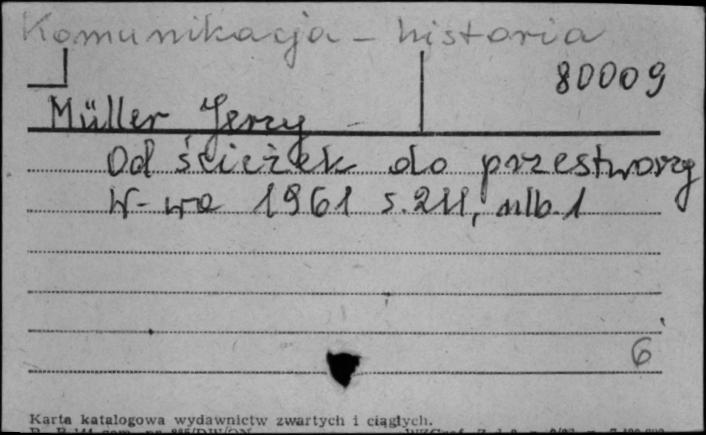 Komunikacja - historia
80009
Müller Jerzy
Od ścieżek do przestworzy
W-wa 1961 s. 211, nlb. 1
6
Karta katalogowa wydawnictw zwartych i ciągłych.